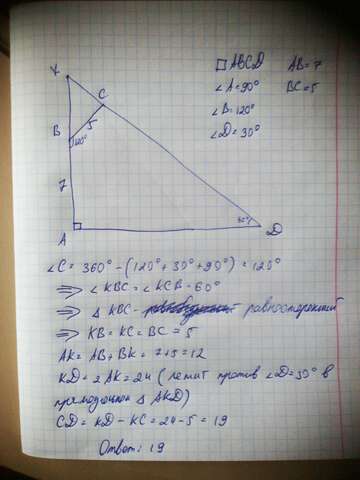 K
C
B
5
120°
7
A
30°
D
□ ABCD AB = 7
∠A = 90° BC = 5
∠B = 120°
∠D = 30°
∠C = 360° - (120° + 30° + 90°) = 120°
⇒ ∠KBC = ∠KCB = 60°
⇒ Δ KBC - равносторонний
⇒ KB = KC = BC = 5
AK = AB + BK = 7+5 = 12
KD = 2AK = 24 (лежит против ∠D = 30° в
прямоугольном Δ AKD)
CD = KD - KC = 24 - 5 = 19
Ответ: 19